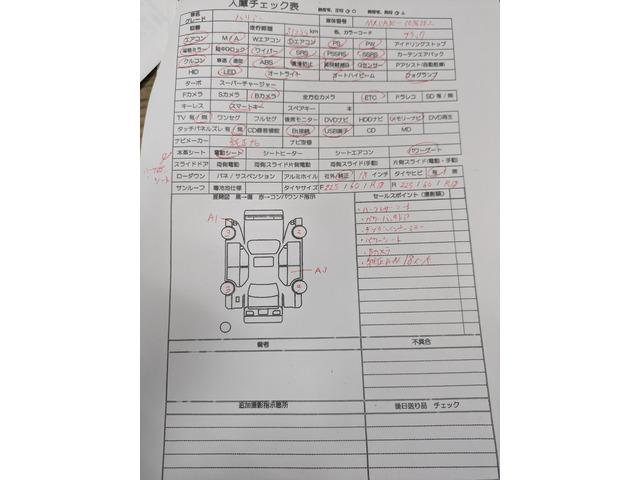 入庫チェック表
車名
グレード
ハリアー
車体番号
走行距離
km
色、カラーコード
ブラック
エアコン M / A Wエアコン Dエアコン PS PW アイドリングストップ
電格ミラー 集中ロック ワイパー SRS PSSRS SSRS カーテンエアバック
クルコン ABS 横滑り防止 Gセンサー Pアシスト(自動駐車)
HID LED オートライト オートハイビーム フォグランプ
ターボ スーパーチャージャー
Fカメラ Sカメラ Bカメラ 全方位カメラ ETC ドラレコ SD 有 / 無
キーレス スマートキー スペアキー 本
TV 有 / 無 ワンセグ フルセグ 後席モニター DVDナビ HDDナビ メモリーナビ DVD再生
タッチパネルズレ 有 / 無 CD録音機能 Bt接続 USB端子 CD MD
ナビメーカー 純正ナビ ナビ型番
本革シート 電動シート シートヒーター シートエアコン パワーゲート
ハーフレザーシート
スライドドア 両側電動 両側スライド片側電動 両側スライド(手動) 片側スライド(電動・手動)
ローダウン バネ / サスペンション アルミホイール 社外 / 純正 18 インチ タイヤヒビ 有 / 無
サンルーフ 寒冷地仕様 タイヤサイズ F 225 / 60 / R18 R 225 / 60 / R18
展開図 黒→傷 赤→コンパウンド指示
セールスポイント(撮影順)
A1
3
3
・ハーフレザーシート
・パワーバックドア
・デジタルインナーミラー
・パワーシート
・Bカメラ
・純正AW 18インチ
A3
備考
不具合
追加撮影指示箇所
後日送り品 チェック